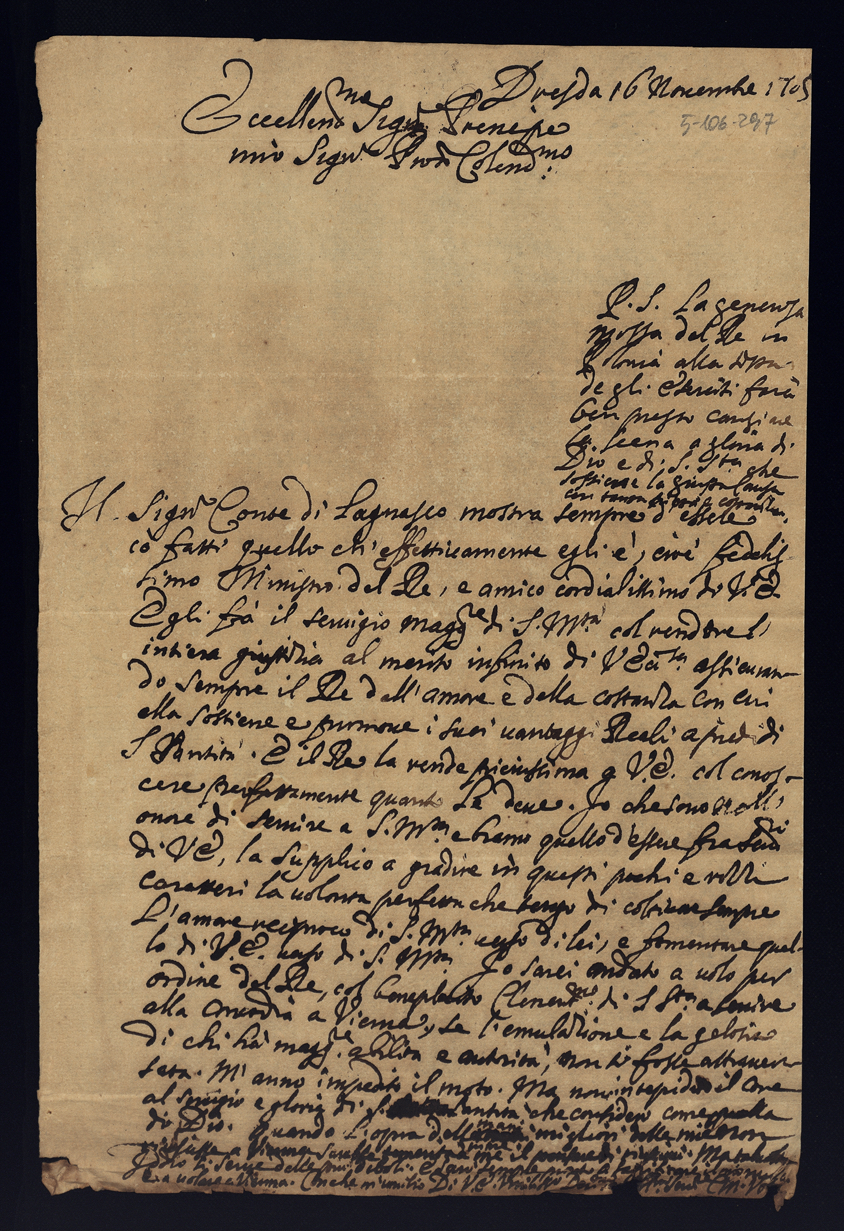 Dresda 16 Novembre 1705
5-106-297
Eccellenmo Sigre Prencipe
mio Sigre Prone Colendmo
P. S. La generosa
mossa del Re in
Polonia alla
degli Eserciti farà
ben presto cangiare
la scena a gloria di
Dio e di S. Stà che
sostiene la giusta causa
con tanta
Il Sigre Conte di Lagnasco mostra sempre d'essere
cò fatti quello ch'effettivamente egli è, cioè fedelis
simo Ministro del Re, e amico cordialissimo di V.E.
Egli fà il servigio maggre di S. Mtà col rendere l'
intiera giustizia al merito infinito di V Ecza assicuran
do sempre il Re dell'amore e della costanza con cui
ella sostiene e promove i suoi vantaggi Reali a piedi di
S Santità. E il Re la rende sicurissima a V.E. col conos-
cere perfettamente quanto Le deve. Io che sono nell'
onore di servire a S. Mtà e bramo quello d'essere fra
di VE, la supplico a gradire in questi pochi e rozzi
caratteri la volontà perfetta che tengo di coltivare sempre
L'amore reciproco di S. Mtà verso di lei, e fomentare quel-
lo di V.E. verso di S. Mtà. Io sarei andato a volo per
ordine del Re, col beneplacito Clementmo di S Stà a servire
alla concordia a Vienna, se l'emulazione e la gelosia
di chi hà maggre abilità e autorità, non si fosse attraver-
sata. M'anno impedito il moto. Ma non intepidito il core
al servigio e gloria di S. Santità che considero come quella
di Dio. Quando l'opra delle migliori delle mie non
a Vienna
Iddio si serve delle più deboli. E qui sempre pronto a
e a volare a Vienna. Di V.E.